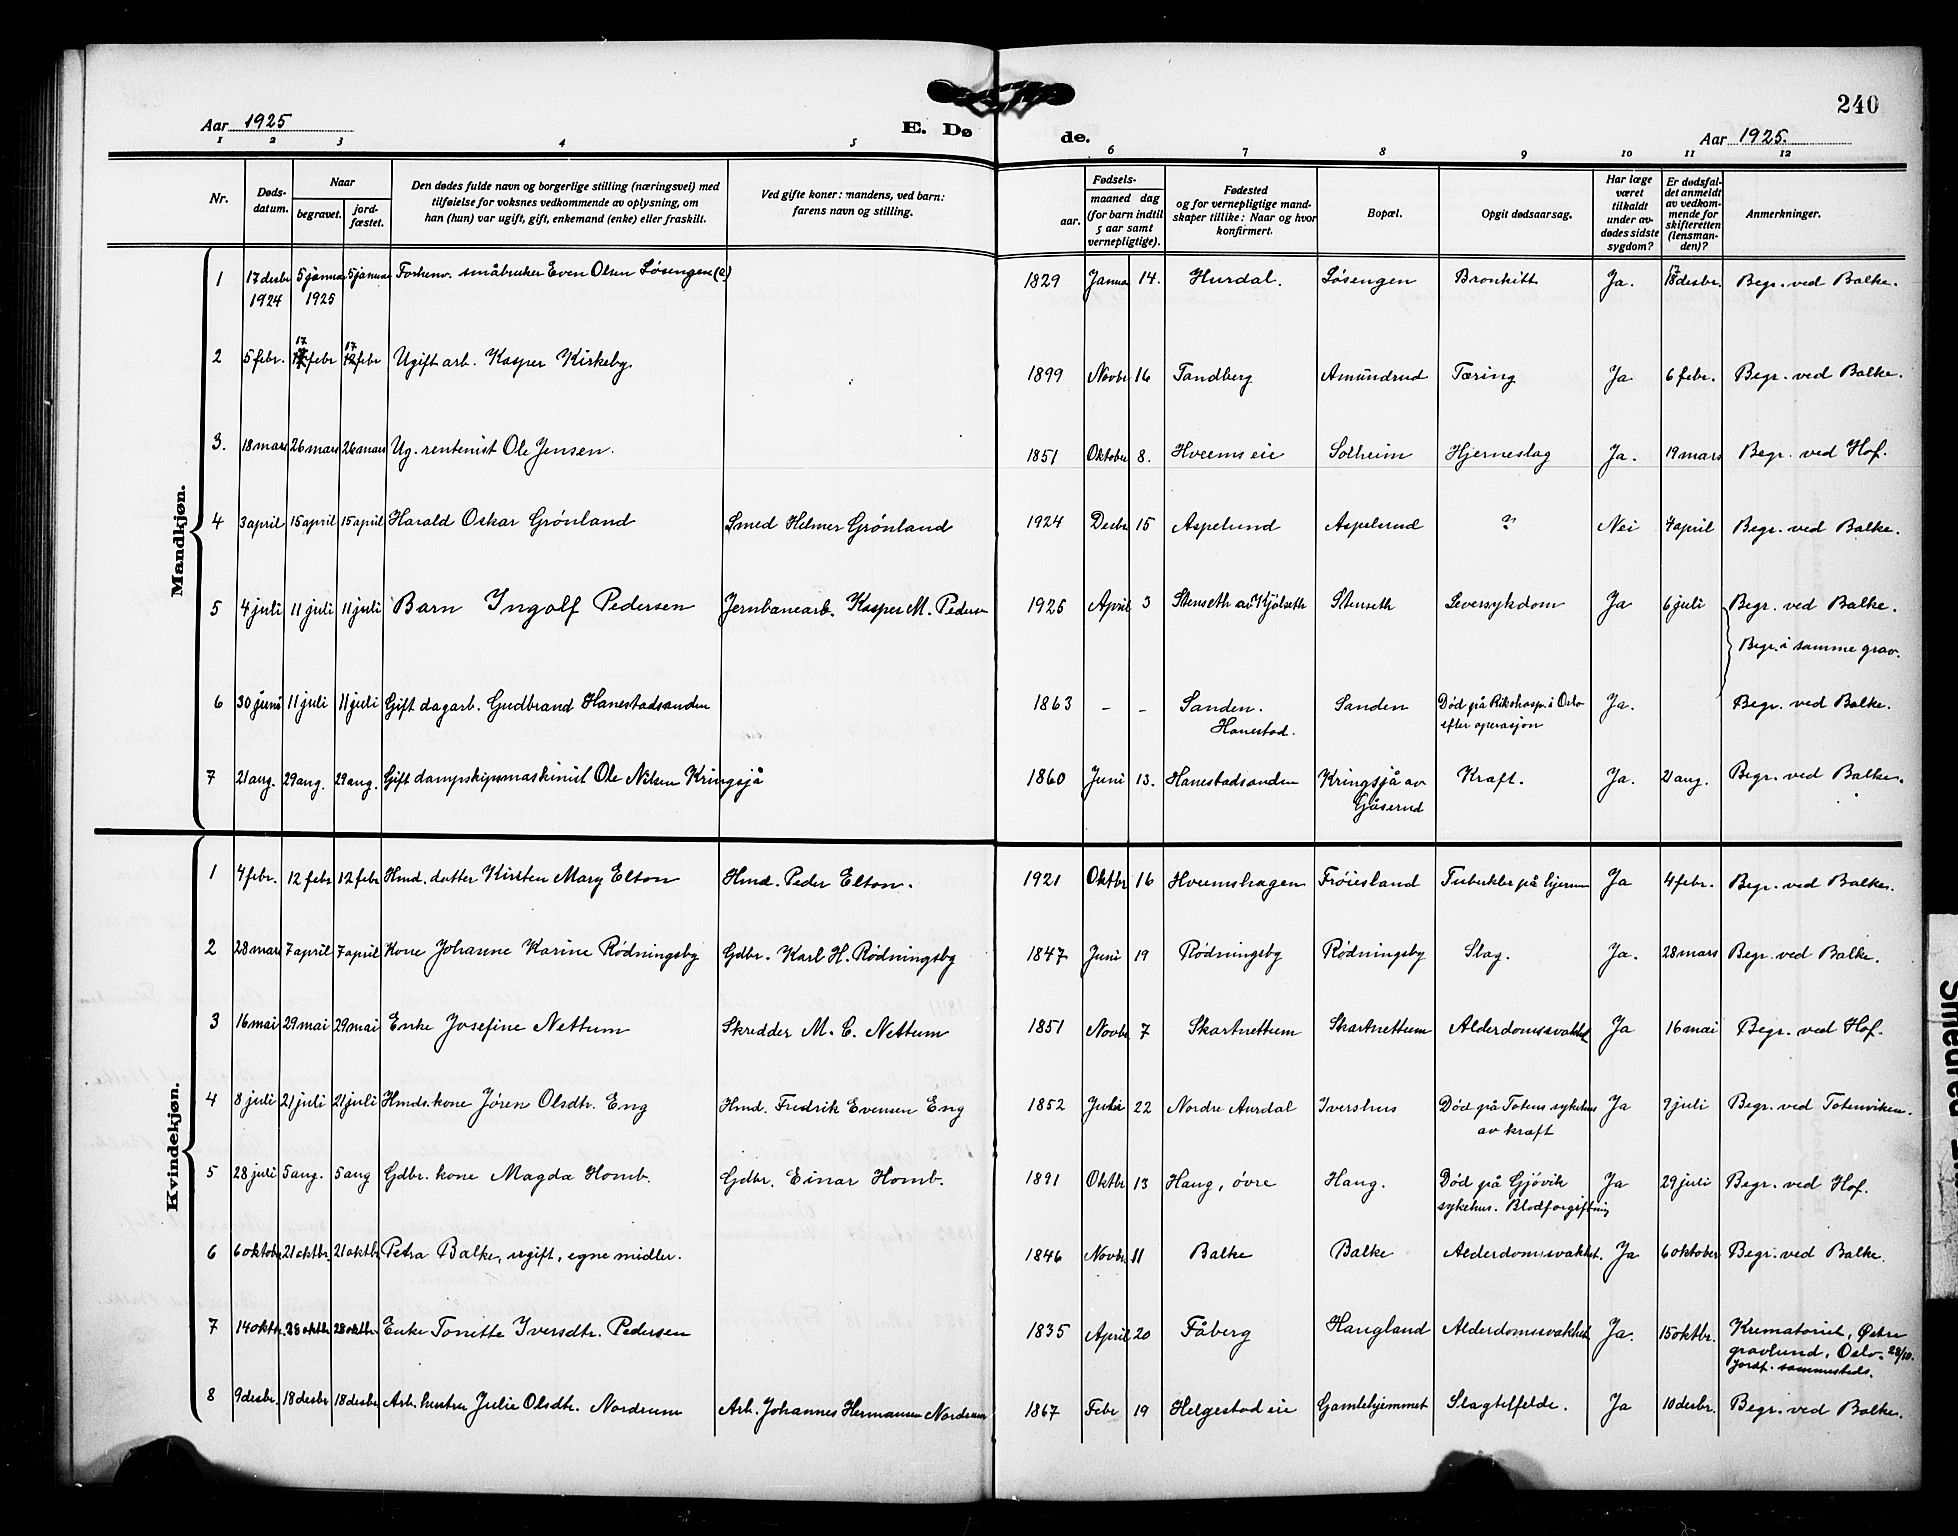 240
Aar 1925
E. Dø de.
Aar 1925.
1 2 3 4 5 6 7 8 9 10 11 12
Nr. Døds-datum. Naar begravet. jord-fæstet. Den dødes fulde navn og borgerlige stilling (næringsvei) med tilføielse for voksnes vedkommende av oplysning, om han (hun) var ugift, gift, enkemand (enke) eller fraskilt. Ved gifte koner: mandens, ved barn: farens navn og stilling. Fødsels- aar. maaned dag (for barn indtil 5 aar samt vernepligtige). Fødested og for vernepligtige mand-skaper tillike: Naar og hvor konfirmert. Bopæl. Opgit dødsaarsag. Har læge været tilkaldt under av-dødes sidste sygdom? Er dødsfal-det anmeldt av vedkom-mende for skifteretten (lensman-den)? Anmerkninger.
Mandkjøn.
1 17 desbr 1924 5 januar 1925 5 januar Forhenv. småbruker Even Olsen Løsengen (e) 1829 Januar 14. Hurdal. Løsengen Bronkitt Ja. 17 18 desbr. Begr. ved Balke.
2 5 febr. 17 febr 17 febr Ugift arb. Kasper Kirkeby 1899 Novbr 16 Tandberg Amundrud Tæring Ja 6 febr. Begr. ved Balke.
3. 18 mars 26 mars 26 mars Ug. rentenist Ole Jensen. 1851 Oktober 8. Hveems eie Solheim Hjerneslag Ja. 19 mars Begr. ved Hof.
4 3 april 15 april 15 april Harald Oskar Grönland Smed Helmer Grönland 1924 Desbr 15 Aspelund Aspelund ? Nei 4 april Begr. ved Balke.
5 4 juli 11 juli 11 juli Barn Ingolf Pedersen Jernbanearb. Kasper M. Pedersen 1925 April 3 Stenseth av Kjölseth Stenseth Leversykdom Ja 6 juli Begr. ved Balke.
Begr. i samme grav.
6 30 juni 11 juli 11 juli Gift dagarb. Gudbrand Hanestadsanden 1863 - - Sanden. Hanestad. Sanden Død på Rikshosp. i Oslo efter operasjon Ja. Begr. ved Balke.
7 21 aug. 29 aug. 29 aug. Gift dampskipsmaskinist Ole Nilsen Kringsjå 1860 Juni 13. Hanestadsanden Kringsjå av Gåserud Kræft. Ja. 21 aug. Begr. ved Balke.
Kvindekjøn.
1 4 febr. 12 febr 12 febr Hmd. datter Kirsten Mary Elton Hmd. Peder Elton. 1921 Oktbr 16 Hveemshagen Fröiesland Tuberkler på hjernen Ja 4 febr. Begr. ved Balke.
2 28 mars 7 april 7 april Kone Johasene Karine Rödningsby Gdbr. Karl H. Rödningsby 1847 Juni 19 Rödningsby Rödningsby Slag. Ja. 28 mars Begr. ved Balke.
3 16 mai 29 mai 29 mai Enke Josefine Nettum Skredder M. C. Nettum 1851 Novbr 7 Skartnettum Skartnettum Alderdomssvakhet Ja 16 mai Begr. ved Hof.
4 8 juli 21 juli 21 juli Hmds. kone Jören Olsdtr. Eng Hmd. Fredrik Evensen Eng 1852 22 Nordre Aurdal Ivershus Död på Totens sykehus av kræft Ja 9 juli Begr. ved Totenviken.
5 28 juli 5 aug. 5 aug Gdbr. kone Magda Homb. Gdbr. Einar Homb. 1891 Oktbr 13 Haug, övre Haug. Död på Gjövik sykehus. Blodforgiftning Ja 29 juli Begr. ved Hof.
6 6 oktober 21 oktbr. 21 oktbr Petra Balke, ugift, egne midler. 1846 Novbr. 11 Balke Balke Alderdomssvakhet. Ja 6 oktober Begr. ved Balke.
7 14 oktbr. 28 oktbr 28 oktbr. Enke Tonette Iversdtr. Pedersen 1835 April 20 Fåberg Haugland Alderdomssvakhet Ja. 15 oktbr. Krematoriet, Østre gravlund, Oslo. 28/10. Jordf. sammesteds.
8 9 desbr. 18 desbr 18 desbr Arb. hustru Julie Olsdtr. Nordrum Arb. Johannes Hermansen Nordrum 1867 Febr 19 Helgestad eie Gamlehjemmet Slagtilfelde. Ja 10 desbr. Begr. ved Balke.